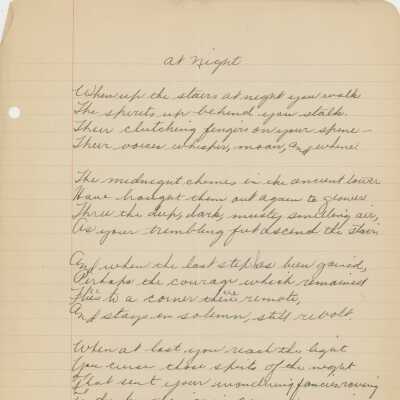 At Night
When up the stairs at night you walk
The spirits up behind you stalk.
Their clutching fingers on your spine—
Their voices whisper, moan, and whine.
The midnight chimes in the ancient tower
Have brought them out again to
Thru the deep, dark, musty smelling air,
As your trembling feet ascend the stair.
And when the last step has been gained,
Perhaps the courage which remained
Flies to a corner there remote,
And stays in solemn, still revolt
When at last you reach the light
You curse those spirits of the night
That sent your wondering fancies roving